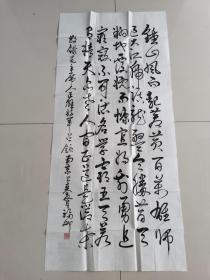 鍾山風雨起蒼黃百萬雄師
過大江虎踞龍盤今勝昔天
翻地覆慨而慷宜將剩勇追
窮寇不可沽名學霸王天若
有情天亦老人間正道是滄桑
毛主席人民解放軍占領南京